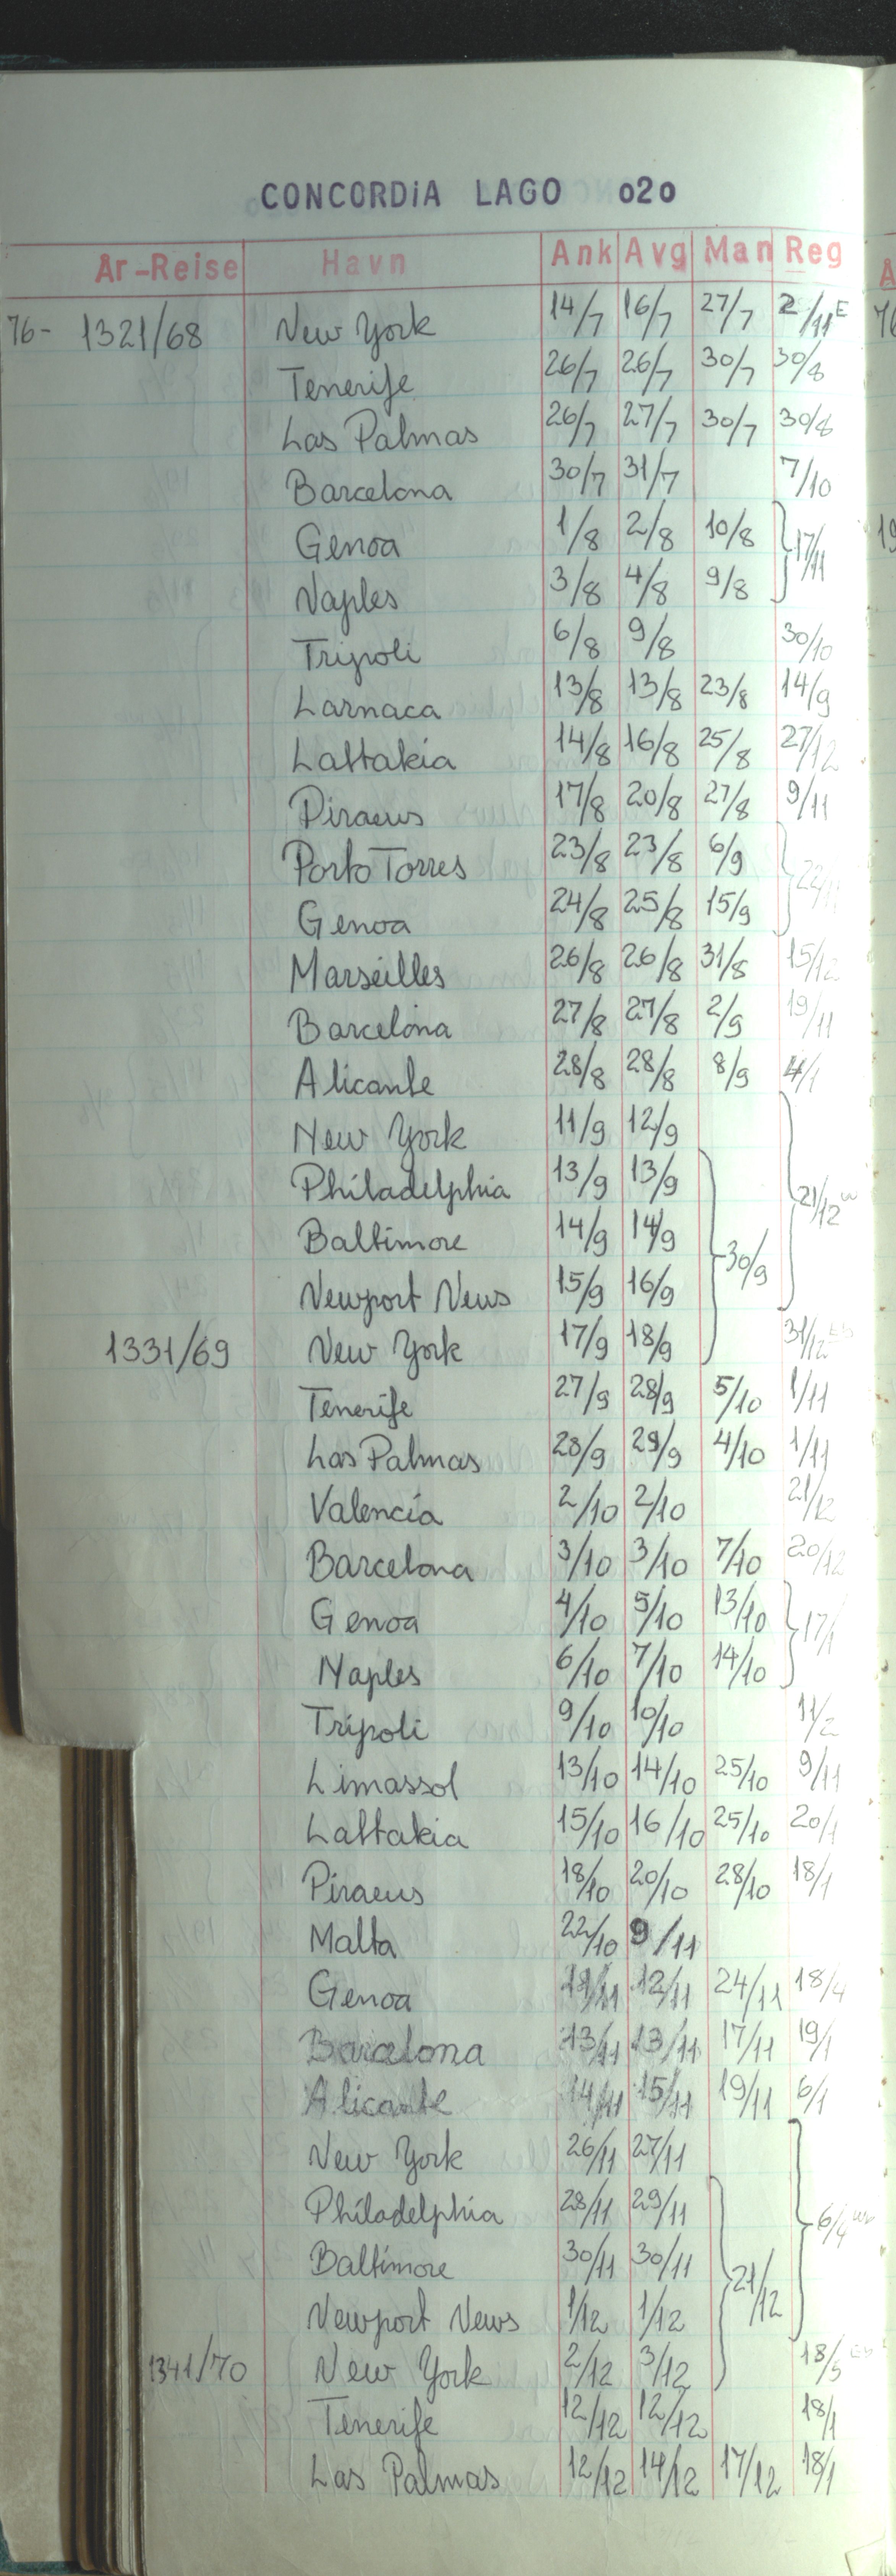 CONCORDiA LAGO 020
År-Reise Havn Ank Avg Man Reg
76- 1321/68 New York 14/7 16/7 27/7 2/11 E
Tenerife 26/7 26/7 30/7 30/8
Las Palmas 26/7 27/7 30/7 30/8
Barcelona 30/7 31/7 7/10
Genoa 1/8 2/8 10/8 17/11
Naples 3/8 4/8 9/8
Tripoli 6/8 9/8 30/10
Larnaca 13/8 13/8 23/8 14/9
Lattakia 14/8 16/8 25/8 27/12
Piraeus 17/8 20/8 27/8 9/11
Porto Torres 23/8 23/8 6/9 22/11
Genoa 24/8 25/8 15/9
Marseilles 26/8 26/8 31/8 15/12
Barcelona 27/8 27/8 2/9 19/11
Alicante 28/8 28/8 8/9 4/1
New York 11/9 12/9
Philadelphia 13/9 13/9 21/12
Baltimore 14/9 14/9 30/9
Newport News 15/9 16/9
1331/69 New York 17/9 18/9 31/12
Tenerife 27/9 28/9 5/10 1/11
Las Palmas 28/9 29/9 4/10 1/11
Valencia 2/10 2/10 21/12
Barcelona 3/10 3/10 7/10 20/12
Genoa 4/10 5/10 13/10 17/1
Naples 6/10 7/10 14/10
Tripoli 9/10 10/10 11/2
Limassol 13/10 14/10 25/10 9/11
Lattakia 15/10 16/10 25/10 20/1
Piraeus 18/10 20/10 28/10 18/1
Malta 22/10 9/11
Genoa 11/11 12/11 24/11 18/4
Barcelona 13/11 13/11 17/11 19/1
Alicante 14/11 15/11 19/11 6/1
New York 26/11 27/11
Philadelphia 28/11 29/11 6/4
Baltimore 30/11 30/11 21/12
Newport News 1/12 1/12
1341/70 New York 2/12 3/12 18/5
Tenerife 12/12 12/12 18/1
Las Palmas 12/12 14/12 17/12 18/1